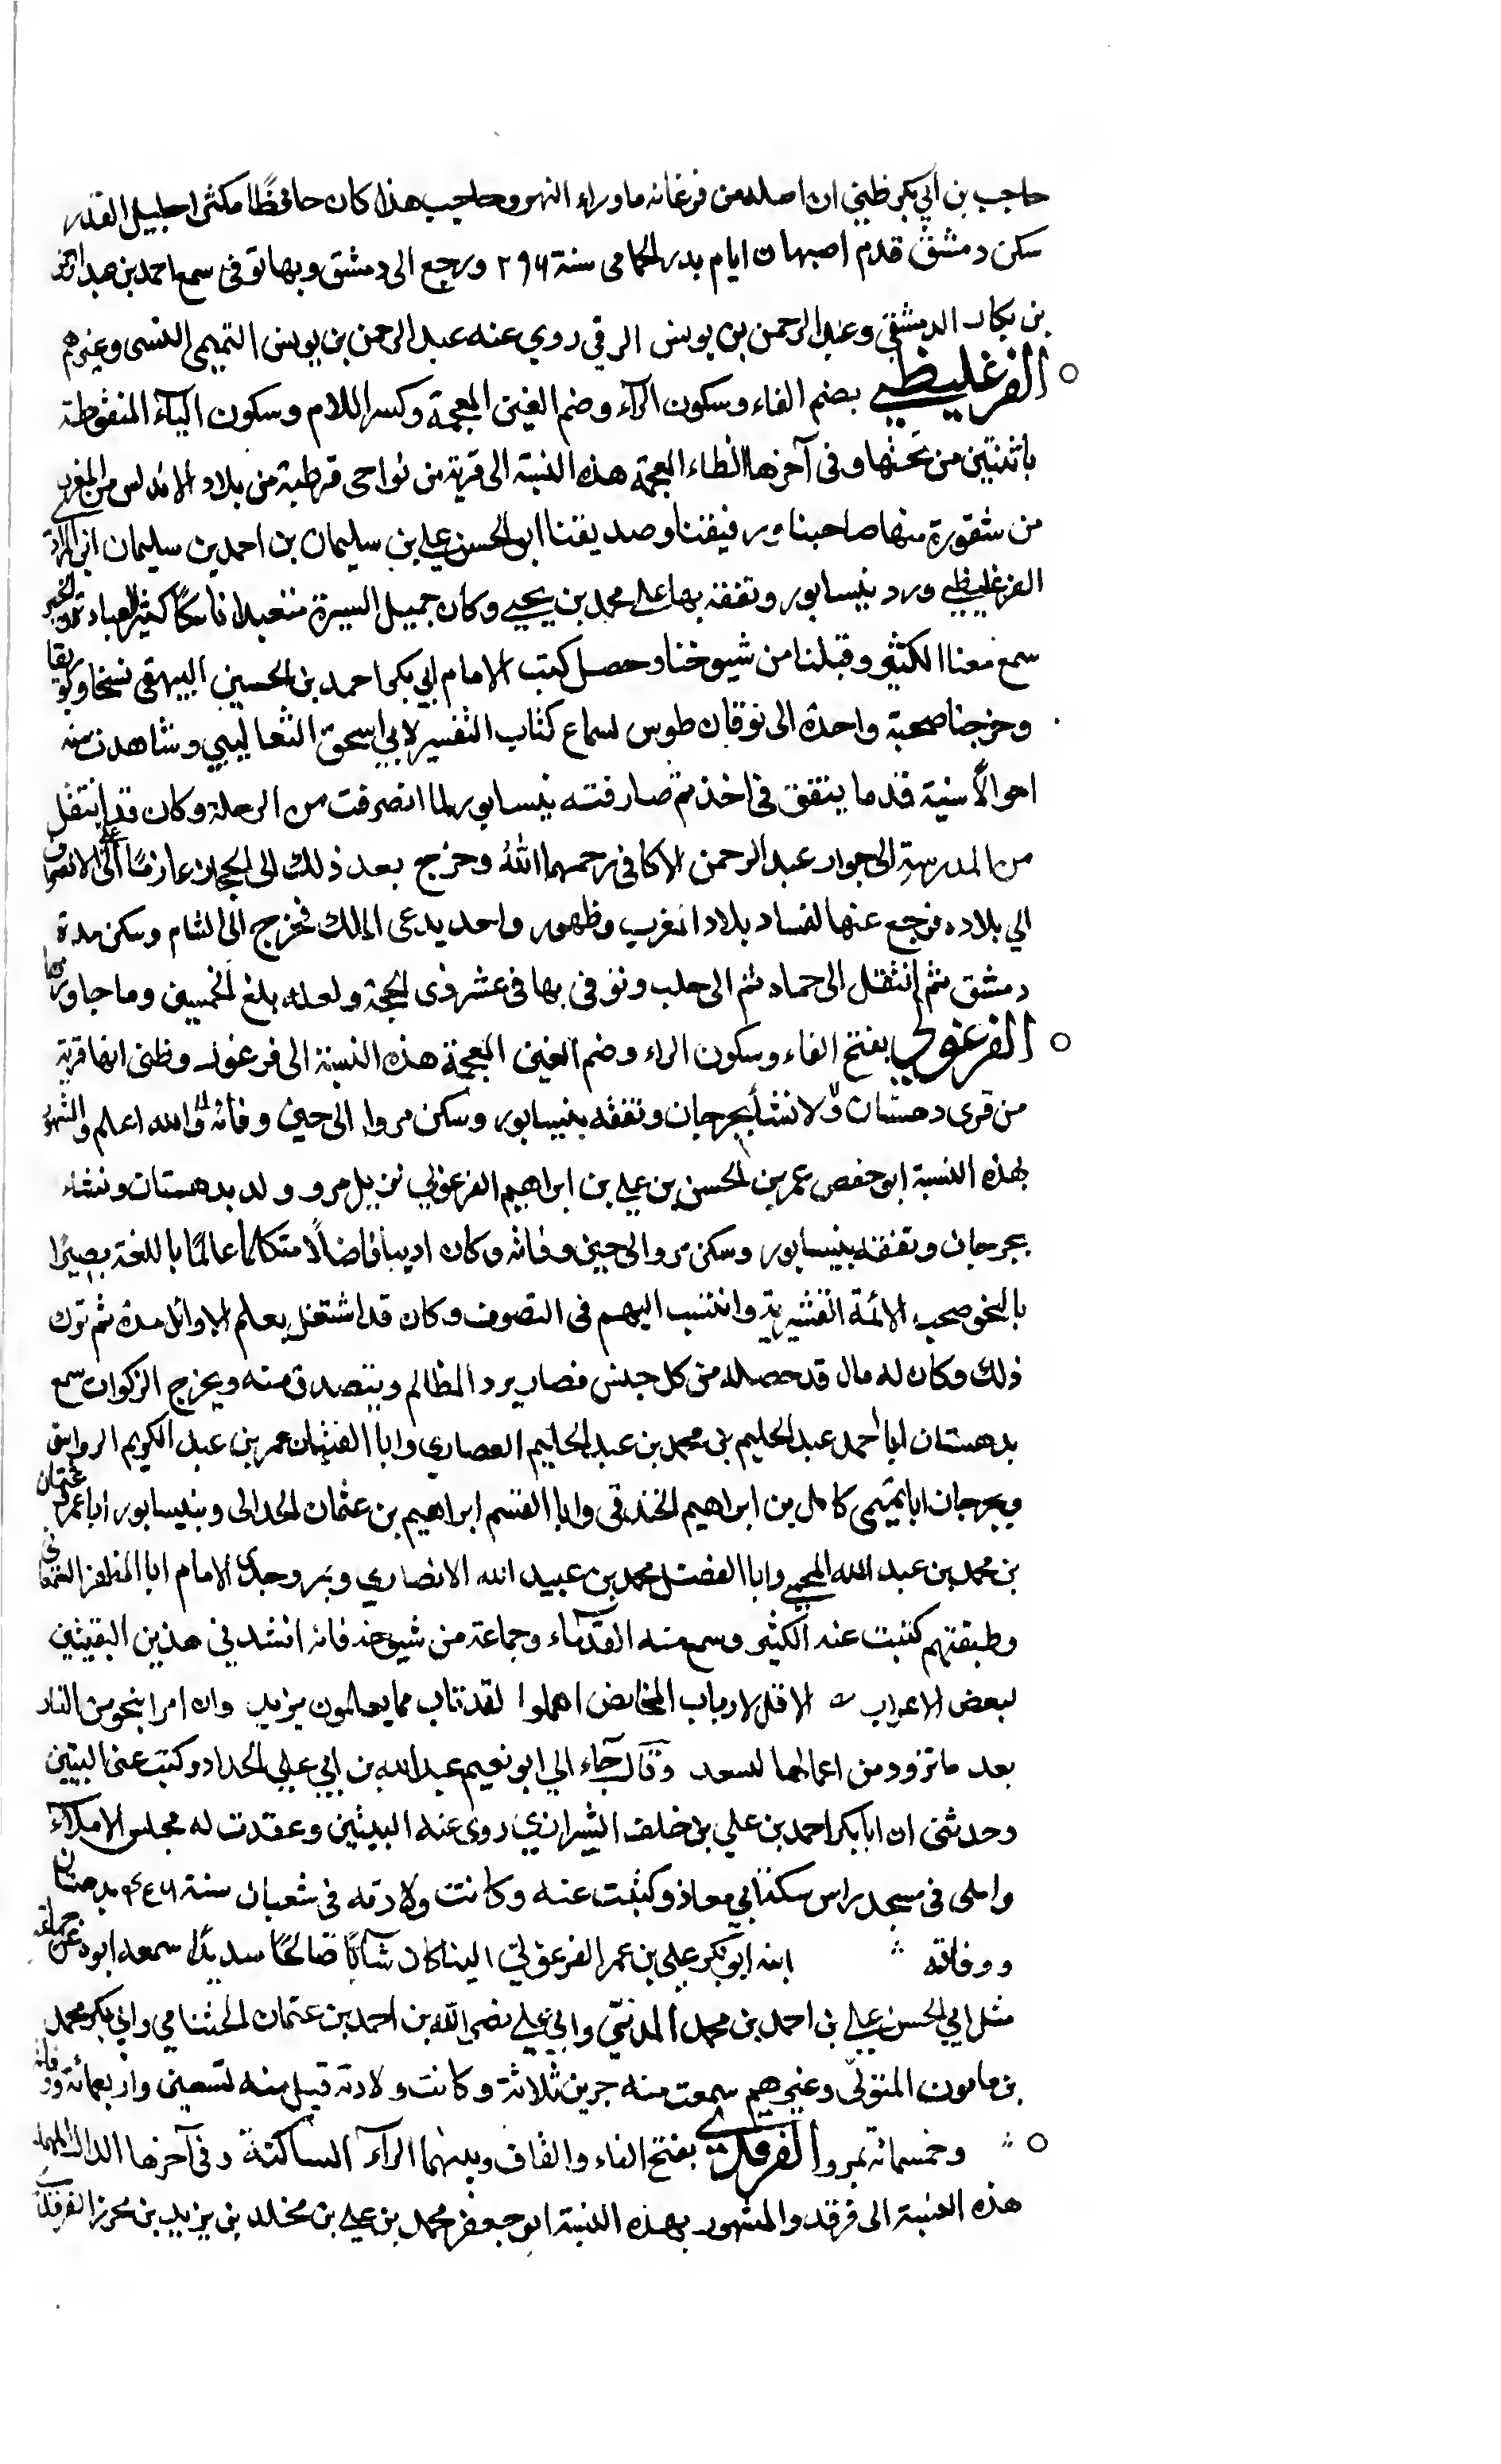 حاجب بن ابي بكر ظني ان اصله من فرغانه ماوراء النهر وحاجب هذا كان حافظًا مكثرا جليل القدر
سكن دمشق قدم اصبهان ايام بدر الحمامى سنة ٢٩٦ ورجع الى دمشق وبها توفى سمع احمد بن عبد الرحمن
بن بكار الدمشقي وعبد الرحمن بن يونس الرقي روي عنه عبد الرحمن بن يونس التميمى النسى وغيرهم
الفرغليظي بضم الفاء وسكون الرآء وضم الغين المعجمة وكسر اللام وسكون اليآء المنقوطة
باثنتين من تحتها وفى آخرها الظاء المعجمة هذه النسبة الى قرية من نواحى قرطبة من بلاد الاندلس من المغرب
من شقورة منها صاحبنا ورفيقنا وصديقنا ابو الحسن علي بن سليمان بن احمد بن سليمان المرادي
الفرغليظي ورد نيسابور وتفقه بها على محمد بن يحيى وكان جميل السيرة متعبدا ناسكًا كثير العبادة والخير
سمع معنا الكثير وقبلنا من شيوخنا وحصل كتب الامام ابي بكر احمد بن الحسين البيهقى نسخا وتوريقا
وخرجنا صحبة واحدة الى نوقان طوس لسماع كتاب التفسير لابي اسحق الثعالبي وشاهدت منه
احوالًا سنية قدما يتفق فى اخذ ثم صارفته بنيسابور لما انصرفت من الرحلة وكان قد انتقل
من المدرسة الى جوار عبد الرحمن الاكافى رحمهما اللهُ وخرج بعد ذلك الى الحجاز عازمًا على الانصراف
الي بلاده فرجع عنها لفساد بلاد المغرب وظهور واحد يدعى الملك فخرج الى الشام وسكن مدة
دمشق ثم انتقل الى حماه ثم الى حلب وتوفى بها فى عشر ذى الحجة ولعله بلغ الخمسين وما جاوزها
الفرغولي بفتح الفاء وسكون الراء وضم الغين المعجمة هذه النسبة الى فرغول وظنى انها قرية
من قرى دهستان ولانشأ بجرجان وتفقه بنيسابور وسكن مروا الى حين وفاته والله اعلم والمشهور
بهذه النسبة ابو حفص عمر بن الحسن بن علي بن ابراهيم الفرغولي نزيل مرو ولد بدهستان ونشاء
بجرجان وتفقه بنيسابور وسكن مرو الى حين وفاته وكان اديبا فاضلًا متكلمًا عالمًا باللغة بصيرًا
بالنحو صحب الائمة القشيرية وانتسب اليهم فى التصوف وكان قد اشتغل بعلم الاوائل مدة ثم ترك
ذلك وكان له مال قد حصله من كل جنس فصار يرد المظالم ويتصدق منه ويخرج الزكوات سمع
بدهستان ابا احمد عبد الحليم بن محمد بن عبد الحليم العصاري وابا الفتيان عمر بن عبد الكريم الرواسى
وبجرجان ابا تميمى كامل بن ابراهيم الخندقى وابا القسم ابراهيم بن عثمان الخدالى وبنيسابور ابا عمرو عثمان
بن محمد بن عبد الله المحمي وابا الفضل محمد بن عبيد الله الانصاري وبمرو جدى الامام ابا المظفر السمعانى
وطبقتهم كتبت عنه الكثير وسمع منه القدماء وجماعة من شيوخه فانه انشدني هذين البقيتين
لبعض الاعراب الا قل لارباب المخايض اهملوا لقد تاب مما يعلمون يزيد وان امرا ينجو من النار
بعد ما تزود من اعمالها لسعد وقال جاء الي ابو نعيم عبد الله بن ابي علي الحداد وكتب عنى البيتين
وحدثنى ان ابا بكر احمد بن علي بن خلف الشيرازي روى عنه البيتين وعقدت له مجلس الاملاء
واملى فى مسجد براس سكة ابي معاذ وكتبت عنه وكانت ولادته فى شعبان سنة ٤٤٦ بدهستان
ووفاته ابنه ابو بكر علي بن عمر الفرغولي الينا كان شآبًا صالحًا سديدًا سمعه ابوه عن جماعة
مثل ابي الحسن علي بن احمد بن محمد المدني وابي علي نصر الله بن احمد بن عثمان الخشنامي وابي بكر محمد
بن مامون المتولى وغيرهم سمعت منه جزين ثلاثة وكانت ولادته قبيل سنه تسعين واربعمائة ووفاته
وخمسمائة بمرو الفرقدي بفتح الفاء والقاف وبينهما الرآء الساكنة وفى آخرها الدال المهملة
هذه النسبة الى فرقد والمشهور بهذه النسبة ابو جعفر محمد بن علي بن مخلد بن يزيد بن محرز الفرقدى